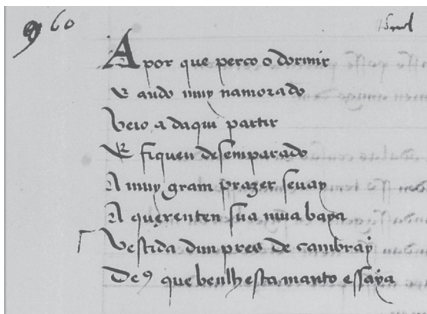 60
A por que perço o dormir
E ando muy namorado
Veio a daqui partir
E fiquen desemparado
A muy gram prazer sevay
A querenten sua mua baya
Vestida dun pres de Cambray
De9 que benlh esta manto essaya